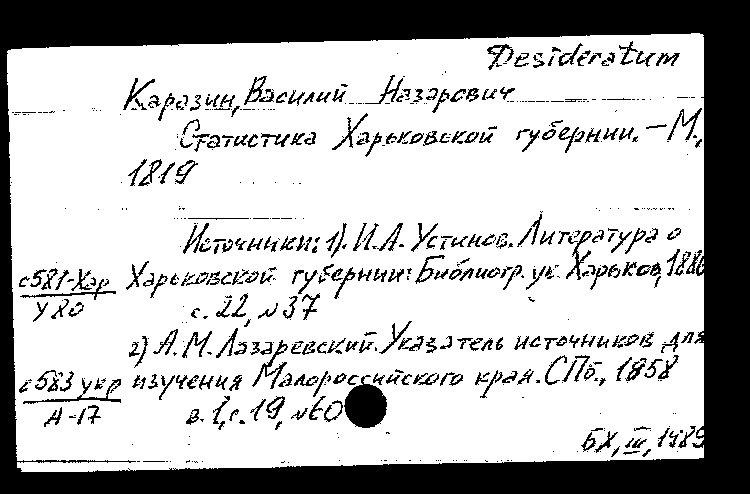 Desideratum
Каразин, Василий Назарович
Статистика Харьковской губернии. — М.,
1819
Источники: 1). И.А. Устинов. Литература о
с581-Хар Харьковской губернии: Библиогр. ук. Харьков, 1886
У80 с. 22, №37
2) А.М. Лазаревский. Указатель источников для
с583 укр изучения Малороссийского края. СПб., 1858
А-17 в. 1, с. 19, №60
БХ, III, 1489